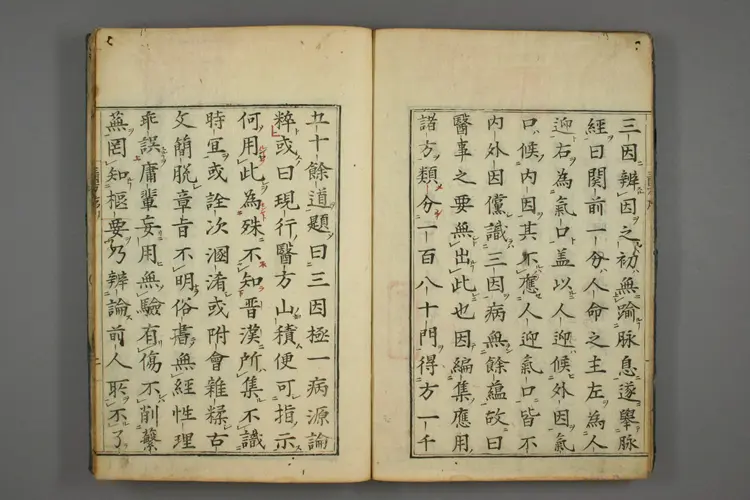 三因辨因之初無踰脉息遂舉脉
經曰関前一分人命之主左為人
迎右為氣口盖以人迎候外因氣
口候内因其不應人迎氣口皆不
内外因儻識三因病無餘蘊故曰
醫事之要無出此也因編集應用
諸方類分一百八十門得方一千
五十餘道題曰三因極一病源論
粹或曰現行醫方山積便可指示
何用此為殊不知晋漢所集不識
時宜或詮次溷淆或附會雜糅古
文簡脱章旨不明俗書無經性理
乖誤庸輩妄用無驗有傷不削蘩
蕪罔知樞要乃辨論前人所不了